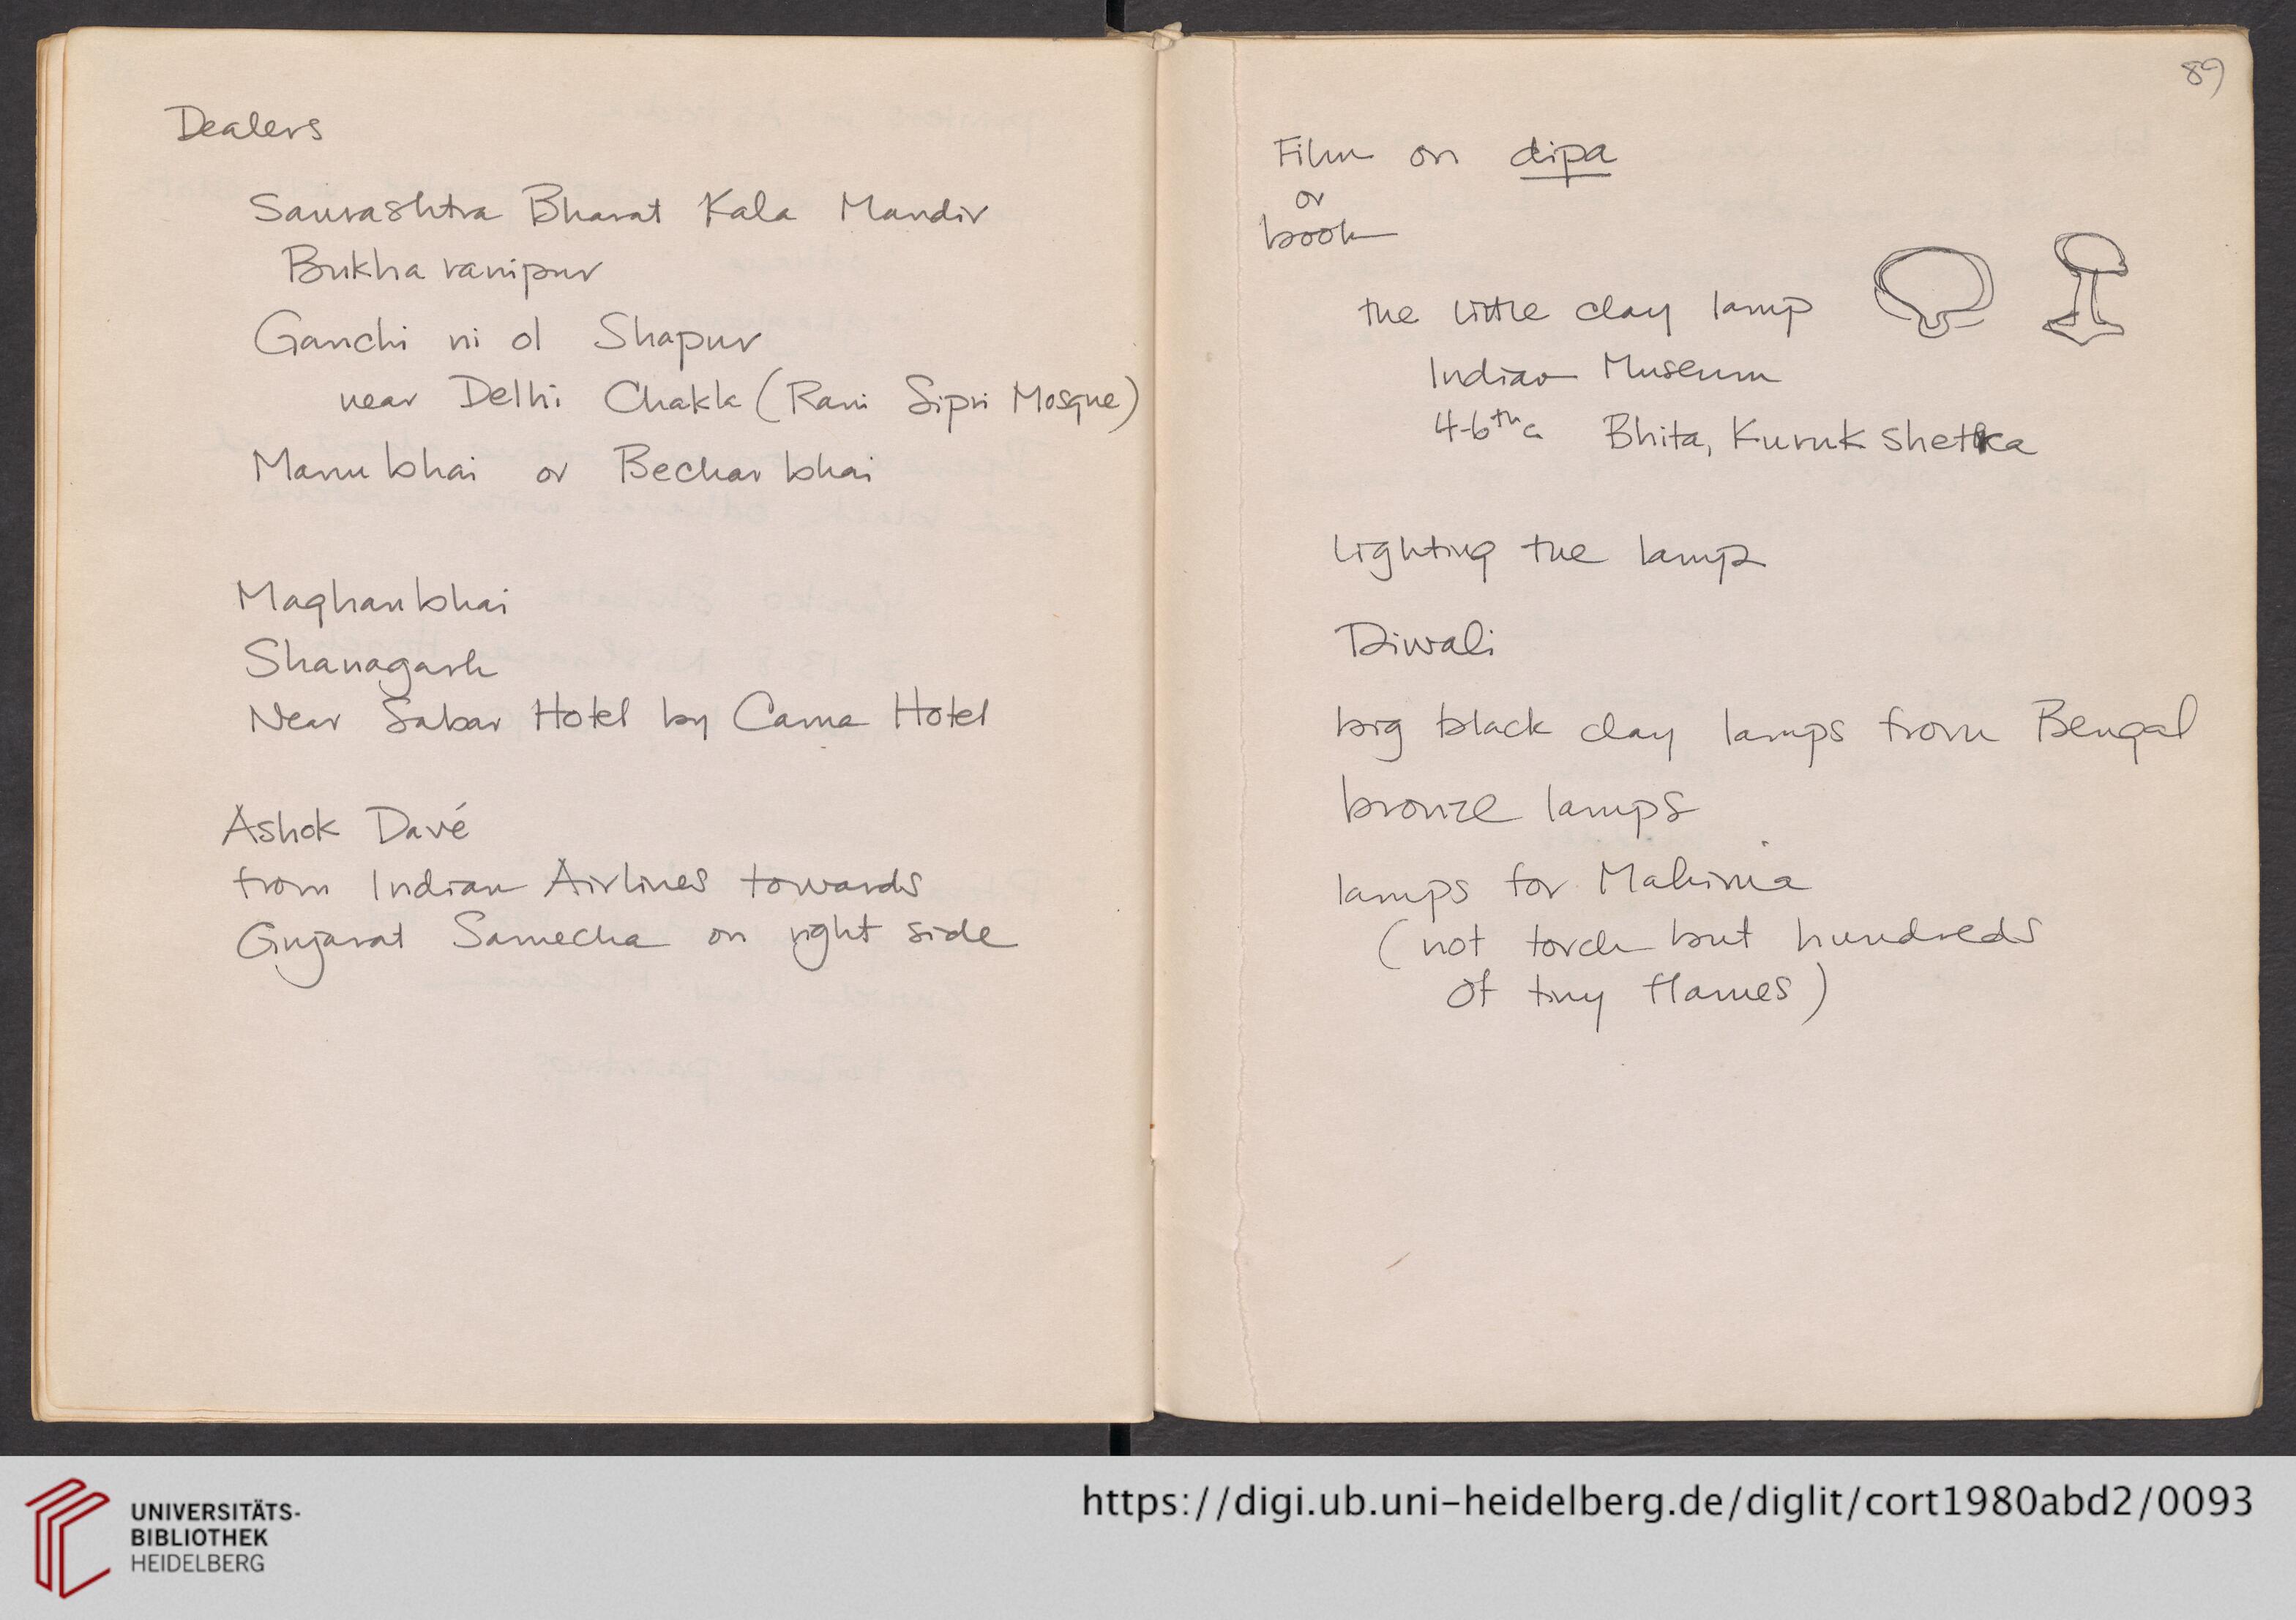 Dealers
Saurashtra Bharat Kala Mandir
Bukha ranipur
Ganchi ni ol Shapur
near Delhi Chakla (Rani Sipri Mosque)
Manubhai or Becharbhai
Maghanbhai
Shanagarh
Near Sabar Hotel by Cama Hotel
Ashok Davé
from Indian Airlines towards
Gujarat Samecha on right side
89
Film on dipa
or
book
the little clay lamp
Indian Museum
4-6th c. Bhita, Kurukshetra
lighting the lamp
Diwali
big black clay lamps from Bengal
bronze lamps
lamps for Mahima
(not torch but hundreds
of tiny flames)
UNIVERSITÄTS-
BIBLIOTHEK
HEIDELBERG
https://digi.ub.uni-heidelberg.de/diglit/cort1980abd2/0093